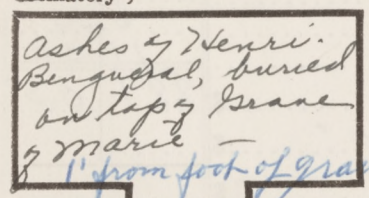 Ashes of Henri.
Benguerel, buried
on top of Grave
of Marie —
1' from foot of gra